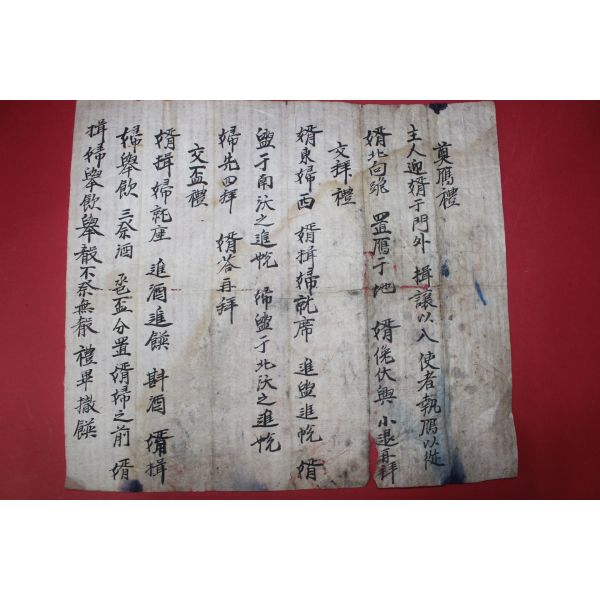 奠鴈禮
主人迎婿于門外 揖讓以入 使者執鴈以從
婿北向跪 置鴈于地 婿俛伏興 小退再拜
交拜禮
婿東婦西 婿揖婦就席 進盥進帨 婿
盥于南沃之進帨 婦盥于北沃之進帨
婦先四拜 婿答再拜
交盃禮
婿揖婦就座 進酒進饌 斟酒 婿揖
婦舉飲 三祭酒 巹盃分置婿婦之前 婿
揖婦舉飲舉殽不祭無殽 禮畢撤饌